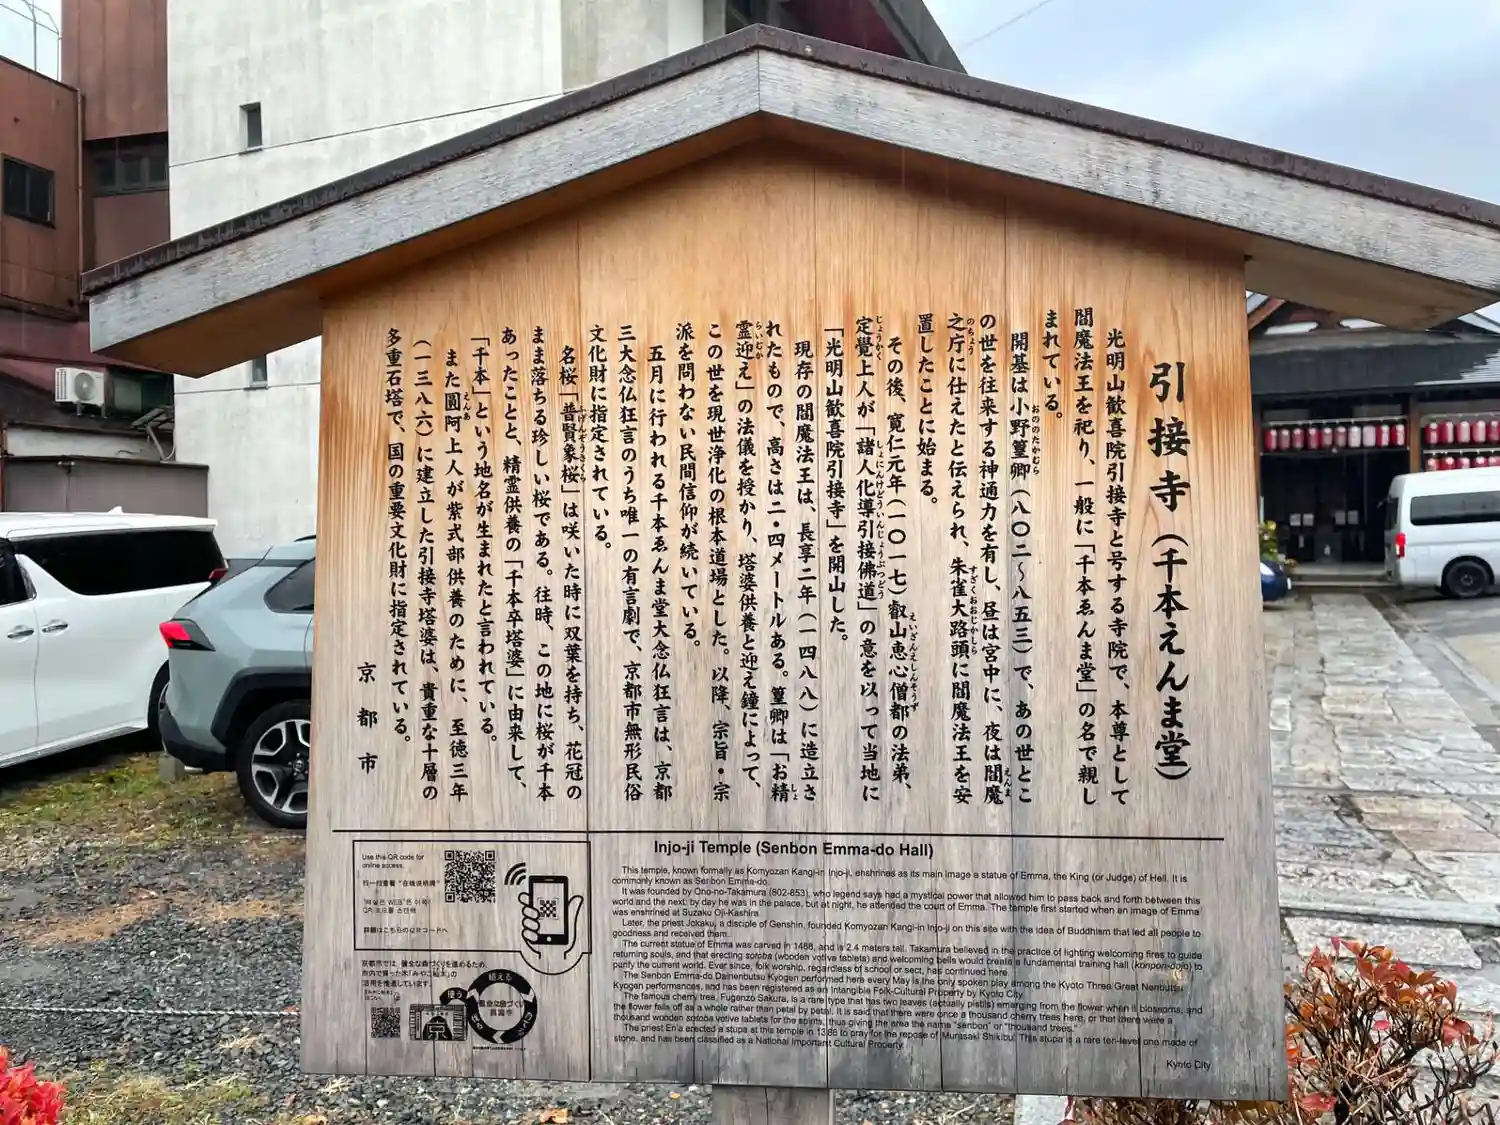 引接寺（千本えんま堂）
光明山歓喜院引接寺と号する寺院で、本尊として
閻魔法王を祀り、一般に「千本ゑんま堂」の名で親し
まれている。
開基は小野篁卿（八〇二～八五三）で、あの世とこ
の世を往来する神通力を有し、昼は宮中に、夜は閻魔
之庁に仕えたと伝えられ、朱雀大路頭に閻魔法王を安
置したことに始まる。
その後、寛仁元年（一〇一七）叡山恵心僧都の法弟、
定覺上人が「諸人化導引接佛道」の意を以って当地に
「光明山歓喜院引接寺」を開山した。
現存の閻魔法王は、長享二年（一四八八）に造立さ
れたもので、高さは二・四メートルある。篁卿は「お精
霊迎え」の法儀を授かり、塔婆供養と迎え鐘によって、
この世を現世浄化の根本道場とした。以降、宗旨・宗
派を問わない民間信仰が続いている。
五月に行われる千本ゑんま堂大念仏狂言は、京都
三大念仏狂言のうち唯一の有言劇で、京都市無形民俗
文化財に指定されている。
名桜「普賢象桜」は咲いた時に双葉を持ち、花冠の
まま落ちる珍しい桜である。往時、この地に桜が千本
あったことと、精霊供養の「千本卒塔婆」に由来して、
「千本」という地名が生まれたと言われている。
また圓阿上人が紫式部供養のために、至徳三年
（一三八六）に建立した引接寺塔婆は、貴重な十層の
多重石塔で、国の重要文化財に指定されている。
京都市
Use this QR code for
online access.
扫一扫查看“在线说明牌”
QR 코드를 스캔해
詳細はこちらのQRコードへ
京都市では、健全な森づくりを進めるため、
市内で育った木「みやこ杣木」の
活用を推進しています。
Injo-ji Temple (Senbon Emma-do Hall)
This temple, known formally as Komyozan Kangi-in Injo-ji, enshrines as its main image a statue of Emma, the King (or Judge) of Hell. It is
commonly known as Senbon Emma-do.
It was founded by Ono-no-Takamura (802-853), who legend says had a mystical power that allowed him to pass back and forth between this
world and the next; by day he was in the palace, but at night, he attended the court of Emma. The temple first started when an image of Emma
was enshrined at Suzaku Oji-Kashira.
Later, the priest Jokaku, a disciple of Genshin, founded Komyozan Kangi-in Injo-ji on this site with the idea of Buddhism that led all people to
goodness and received them.
The current statue of Emma was carved in 1488, and is 2.4 meters tall. Takamura believed in the practice of lighting welcoming fires to guide
returning souls, and that erecting sotoba (wooden votive tablets) and welcoming bells would create a fundamental training hall (konpon-dojo) to
purify the current world. Ever since, folk worship, regardless of school or sect, has continued here.
The Senbon Emma-do Dainenbutsu Kyogen performed here every May is the only spoken play among the Kyoto Three Great Nenbutsu
Kyogen performances, and has been registered as an Intangible Folk-Cultural Property by Kyoto City.
The famous cherry tree, Fugenzo Sakura, is a rare type that has two leaves (actually pistils) emerging from the flower when it blossoms, and
the flower falls off as a whole rather than petal by petal. It is said that there were once a thousand cherry trees here, or that there were a
thousand wooden sotoba votive tablets for the spirits, thus giving the area the name "senbon" or "thousand trees."
The priest En'a erected a stupa at this temple in 1386 to pray for the repose of Murasaki Shikibu. This stupa is a rare ten-level one made of
stone, and has been classified as a National Important Cultural Property.
Kyoto City